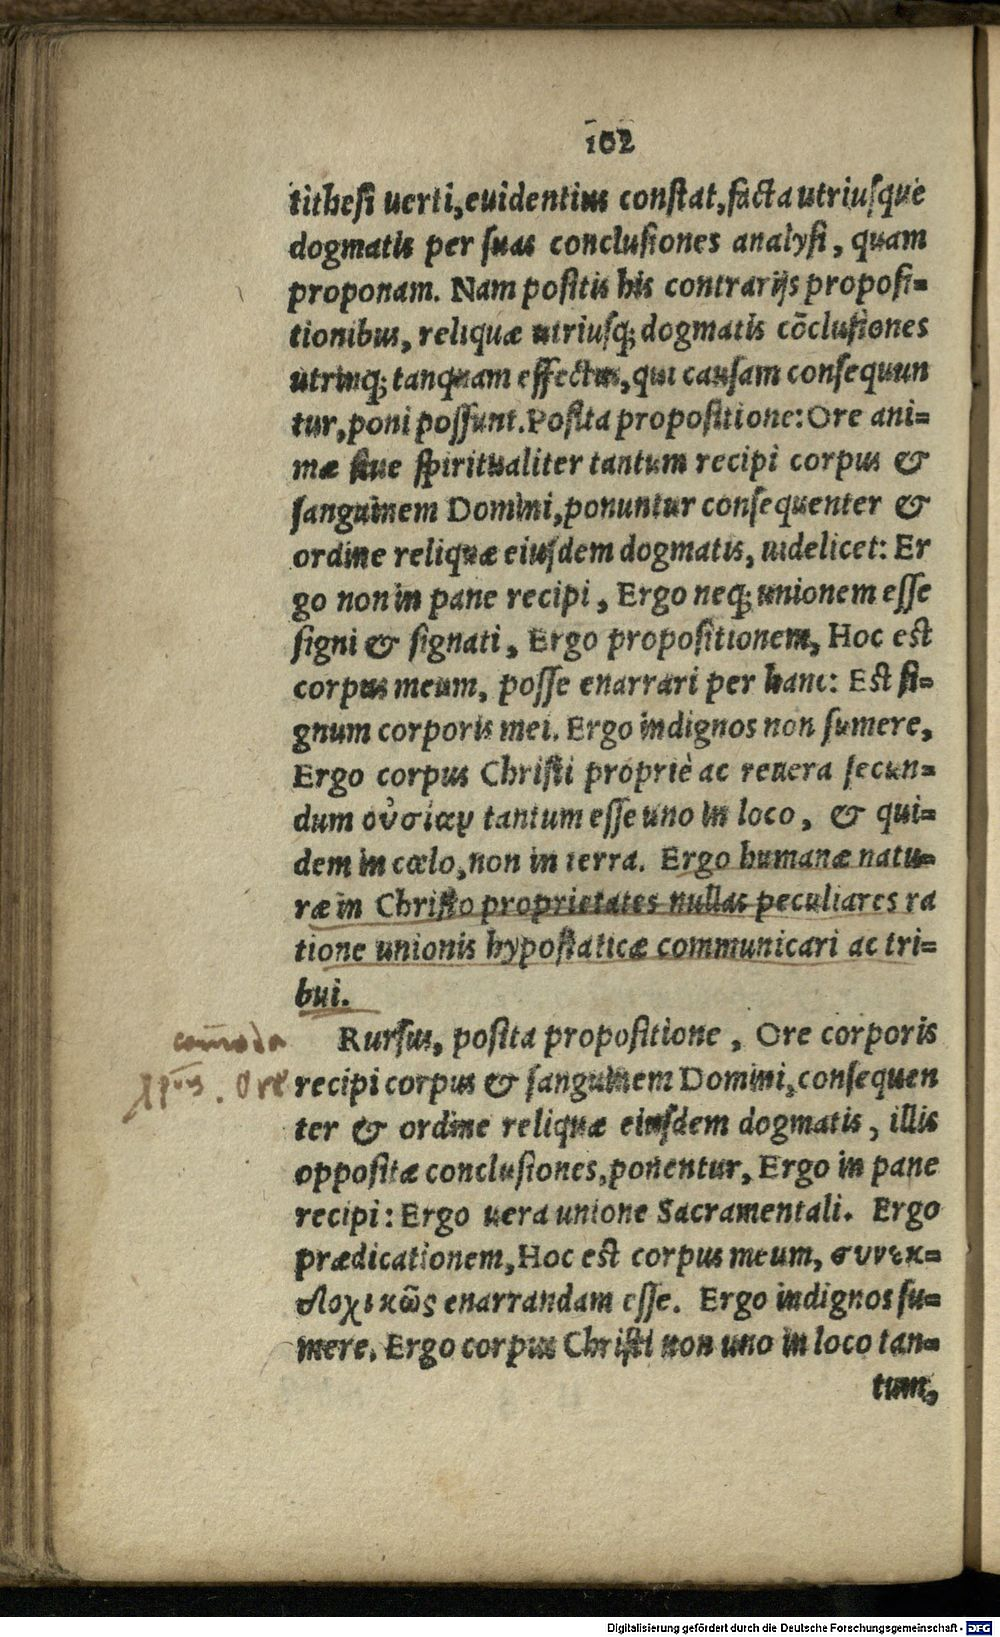 102
tithesi uerti, euidentius constat, facta utriusque
dogmatis per suas conclusiones analysi, quam
proponam. Nam positis his contrarijs proposi=
tionibus, reliquæ utriusq; dogmatis cōclusiones
utrinq; tanquam effectus, qui causam consequun
tur, poni possunt. Posita propositione: Ore ani=
mæ siue spiritualiter tantum recipi corpus &
sanguinem Domini, ponuntur consequenter &
ordine reliquæ eiusdem dogmatis, uidelicet: Er
go non in pane recipi, Ergo neq; unionem esse
signi & signati, Ergo propositionem, Hoc est
corpus meum, posse enarrari per hanc: Est si=
gnum corporis mei. Ergo indignos non sumere,
Ergo corpus Christi propriè ac reuera secun=
dum οὐσίαν tantum esse uno in loco, & qui=
dem in cœlo, non in terra. Ergo humanæ natu=
ræ in Christo proprietates nullas peculiares ra
tione unionis hypostaticæ communicari ac tri=
bui.
Rursus, posita propositione, Ore corporis
recipi corpus & sanguinem Domini, consequen
ter & ordine reliquæ eiusdem dogmatis, illis
oppositæ conclusiones, ponentur, Ergo in pane
recipi: Ergo uera unione Sacramentali. Ergo
prædicationem, Hoc est corpus meum, συνεκ=
δοχικῶς enarrandam esse. Ergo indignos su=
mere. Ergo corpus Christi non uno in loco tan=
tum,
Ore
Digitalisierung gefördert durch die Deutsche Forschungsgemeinschaft - DFG